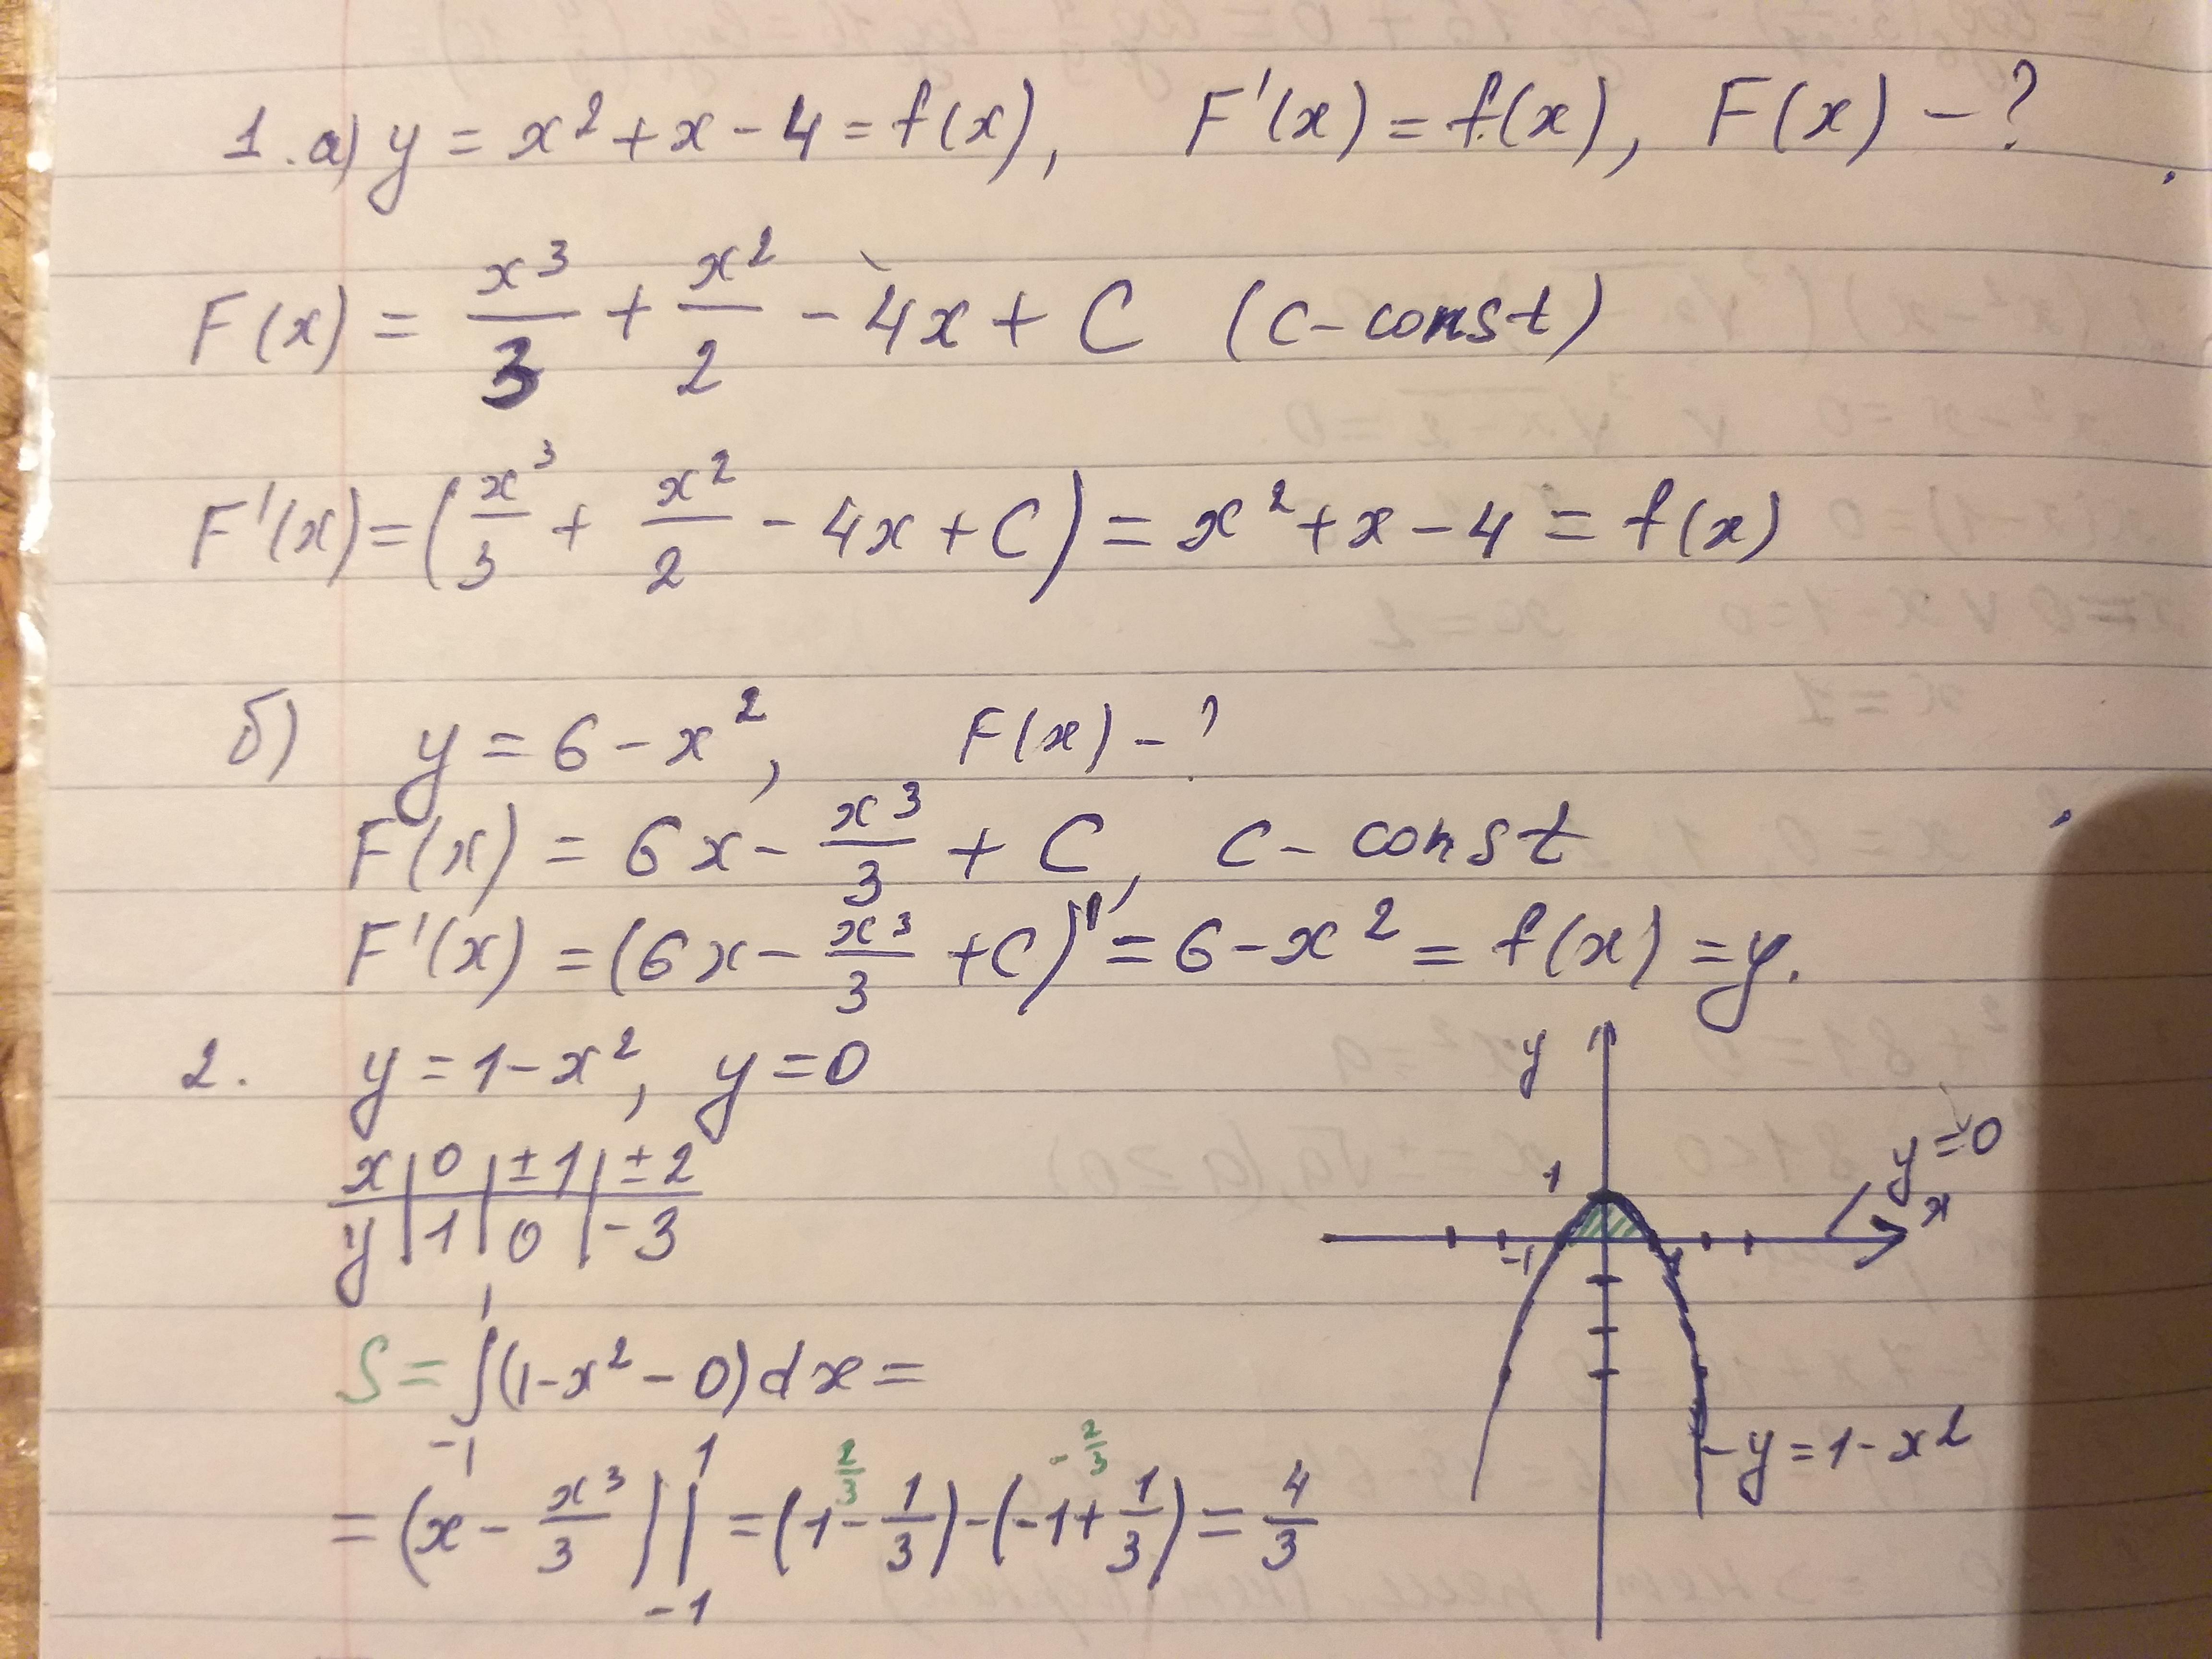 1. а) y = x² + x - 4 = f(x), F'(x) = f(x), F(x) - ?
F(x) = x³/3 + x²/2 - 4x + C (c - const)
F'(x) = (x³/3 + x²/2 - 4x + C) = x² + x - 4 = f(x)
б) y = 6 - x², F(x) - ?
F(x) = 6x - x³/3 + C, c - const
F'(x) = (6x - x³/3 + C)' = 6 - x² = f(x) = y.
2. y = 1 - x², y = 0
x | 0 | ±1 | ±2
y | 1 | 0 | -3
S = ∫₋₁¹ (1 - x² - 0) dx =
= (x - x³/3) |₋₁¹ = (1 - 1/3) - (-1 + 1/3) = 4/3
2/3
- 2/3
y
y = 0
1
x
-1
1
y = 1 - x²